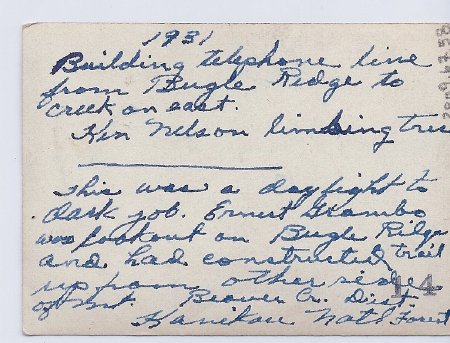 1931
Building telephone line
from Bugle Ridge to
creek on east.
Ken Nelson limbing tree
This was a daylight to
dark job. Ernest Grambo
was lookout on Bugle Ridge
and had constructed trail
up from other side
of mt. Beaver Cr. Dist.
Kaniksu Natl Forest
14